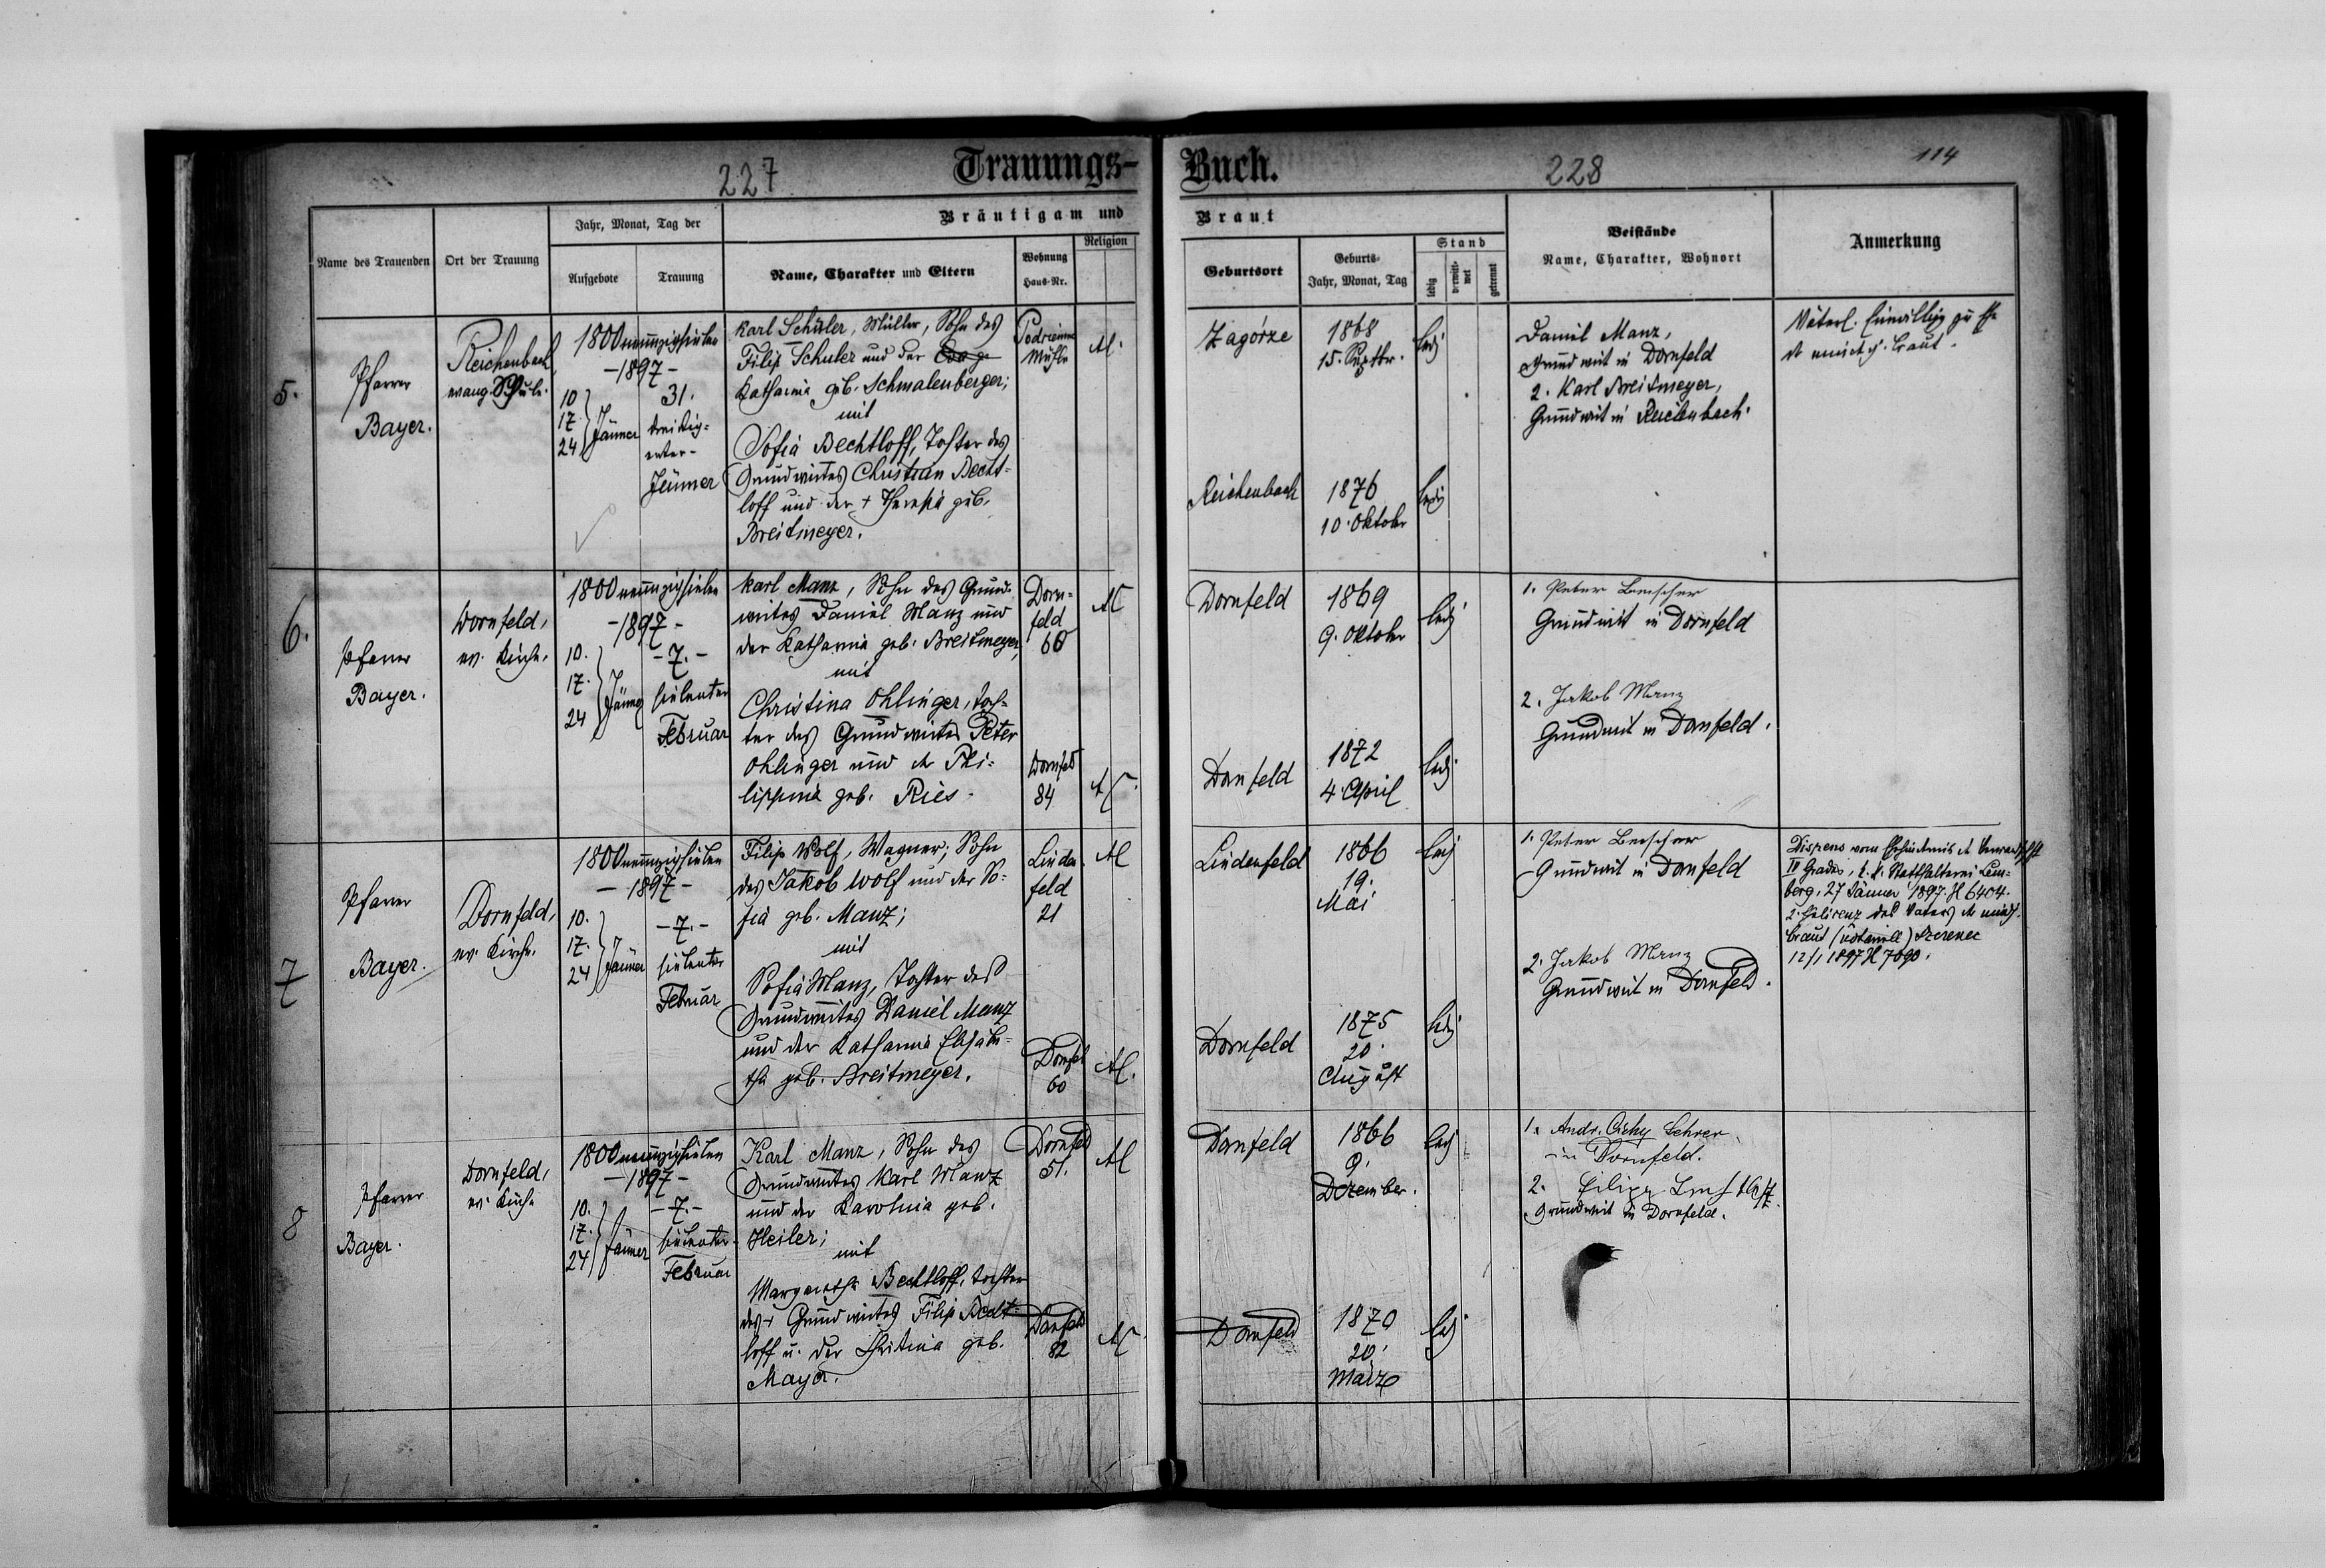 227
Trauungs-
Buch.
228
114
Name des Trauenden
Ort der Trauung
Jahr, Monat, Tag der
Aufgebote
Trauung
Bräutigam und
Name, Charakter und Eltern
Wohnung
Haus-Nr.
Religion
Braut
Geburtsort
Geburts-
Jahr, Monat, Tag
Stand
ledig
verwitt-
wet
getrennt
Beistände
Name, Charakter, Wohnort
Anmerkung
5.
Pfarrer
Bayer.
Reichenbach
evang. Schule.
1800neunzigsieben
-1897-
10
17.
24
Jänner
31.
dreißig-
erster-
Jänner
Karl Schuler, Müller, Sohn des
Filip Schuler und der
Katharina geb. Schmalenberger;
mit
Sofia Bechtloff, Tochter des
Grundwirtes Christian Becht-
loff und der + Theresia geb.
Breitmeyer.
Mühle
AC.
Zagórze
1868
15. Septbr.
led.
Reichenbach
1876
10. Oktober
led.
Daniel Manz,
Grundwirt in Dornfeld
2. Karl Breitmeyer,
Grundwirt in Reichenbach.
Väterl. Einwillig zu Ehe
Braut.
6.
Pfarrer
Bayer.
Dornfeld,
ev. Kirche.
1800neunzigsieben
-1897-
10.
17.
24
Jänner
-7.-
siebenter
Februar
Karl Manz, Sohn des Grund-
wirtes Daniel Manz und
der Katharina geb. Breitmeyer,
mit
Christina Ohlinger, Toch-
ter des Grundwirtes Peter
Ohlinger und der Phi-
lippina geb. Ries.
Dorn-
feld
60
AC
Dornfeld
84
AC.
Dornfeld
1869
9. Oktober
led.
Dornfeld
1872
4. April
led.
1. Peter
Grundwirt in Dornfeld
2. Jakob Manz
Grundwirt in Dornfeld.
7
Pfarrer
Bayer.
Dornfeld,
ev. Kirche.
1800neunzigsieben
-1897-
10.
17.
24
Jänner
-7.-
siebenter
Februar
Filip Wolf, Wagner; Sohn
des Jakob Wolf und der So-
fia geb. Manz;
mit
Sofia Manz, Tochter des
Grundwirtes Daniel Manz
und der Katharina Elisabe-
tha geb. Breitmeyer.
Linden-
feld
21
AC
Dornfeld
60
AC.
Lindenfeld
1866
19.
Mai
led.
Dornfeld
1875
20.
August
led.
1. Peter
Grundwirt in Dornfeld
2. Jakob Manz
Grundwirt in Dornfeld.
Dispens vom Ehehindernis der Verwandtschft
Grades, k. k. Statthalterei Lem-
berg, 27 Jänner 1897.
des Vaters der mindj.
Braut
12/1 1897
8
Pfarrer
Bayer.
Dornfeld,
ev. Kirche
1800neunzigsieben
-1897-
10.
17.
24
Jänner
-7.-
siebenter
Februar
Karl Manz, Sohn des
Grundwirtes Karl Manz
und der Karolina geb.
Heiler;
mit
Margaretha Bechtloff, Tochter
des + Grundwirtes Filip Becht-
loff u. der Christina geb.
Mayer.
Dornfeld
51.
AC
Dornfeld
82
AC.
Dornfeld
1866
9.
Dezember.
led.
Dornfeld
1870
20.
März
led.
1. Andr. Cichy Lehrer
in Dornfeld.
2. Filipp
Grundwirt in Dornfeld.